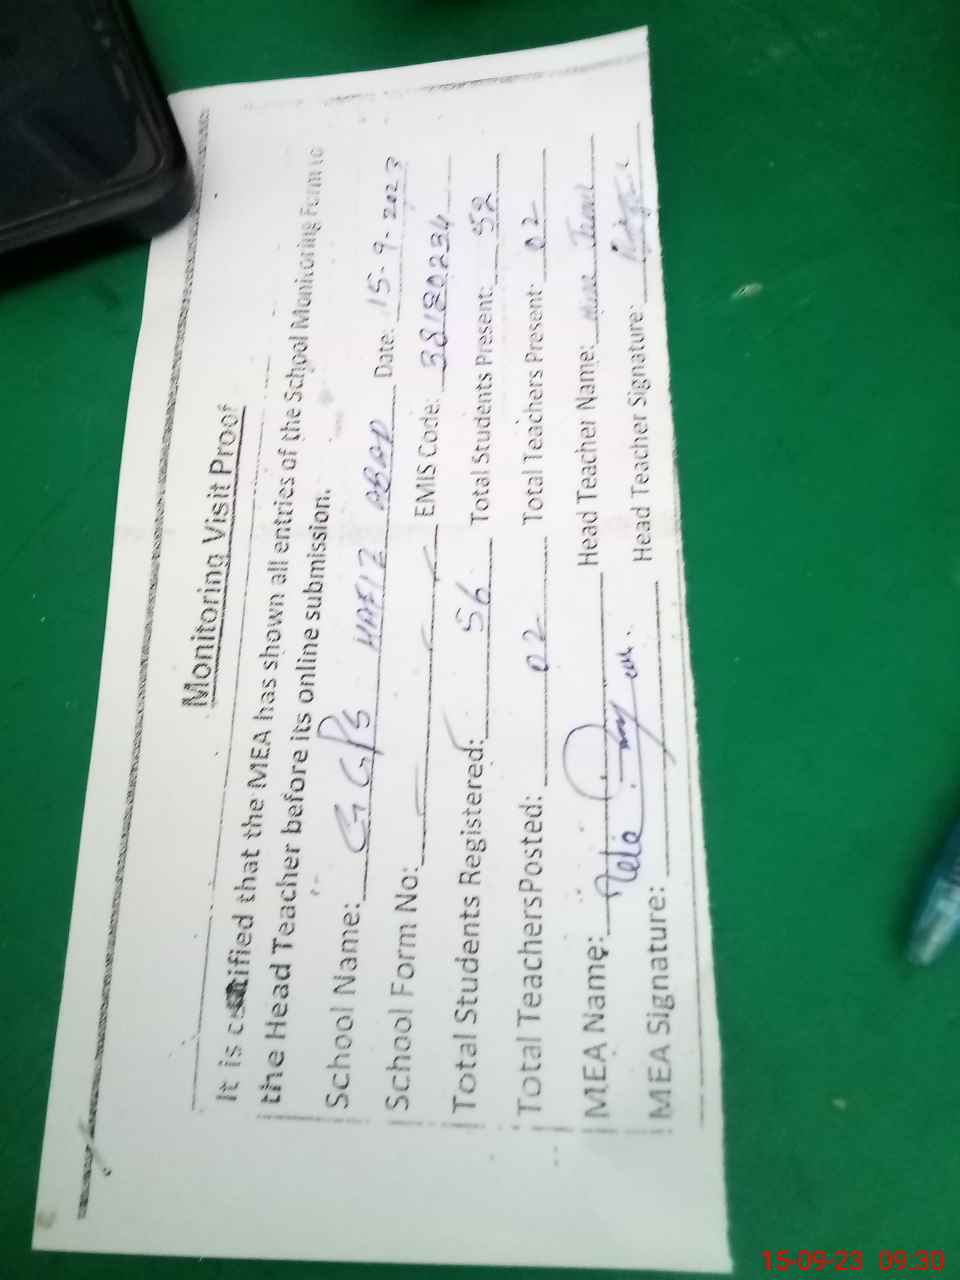 Monitoring Visit Proof
It is certified that the MEA has shown all entries of the School Monitoring Form to
the Head Teacher before its online submission.
School Name: GGPS HAFIZ ABAD Date: 15-9-2023
School Form No: EMIS Code: 38120234
Total Students Registered: 56 Total Students Present: 52
Total TeachersPosted: 02 Total Teachers Present: 02
MEA Name: Head Teacher Name:
MEA Signature: Head Teacher Signature:
15-09-23 09:30